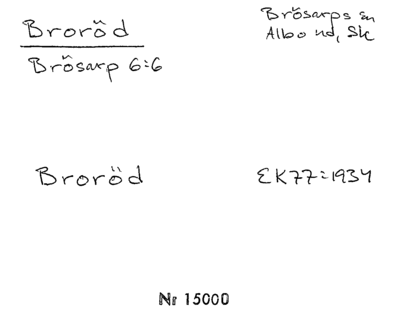 Broröd
Brösarps sn
Albo hd, Sk
Brösarp 6:6
Broröd
EK77=1934
Nr 15000